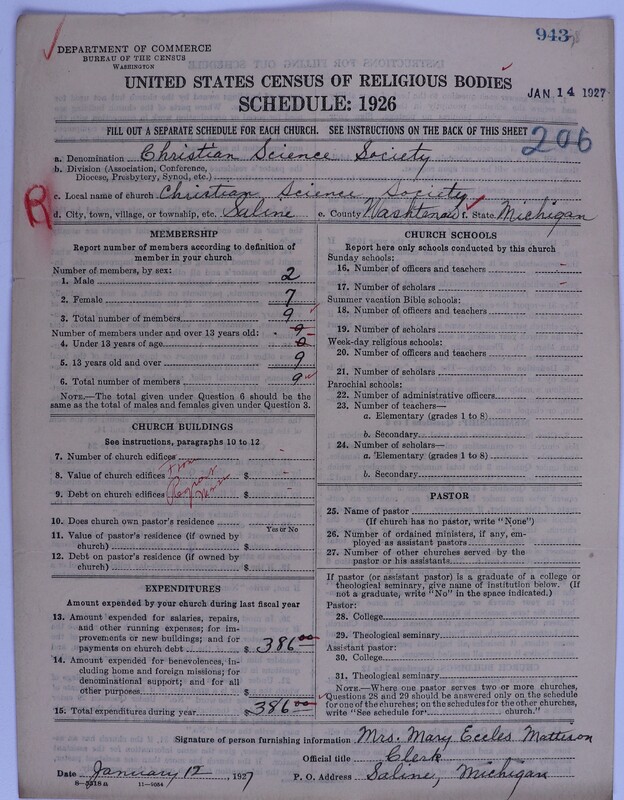 943
DEPARTMENT OF COMMERCE
BUREAU OF THE CENSUS
WASHINGTON
UNITED STATES CENSUS OF RELIGIOUS BODIES
JAN 14 1927
SCHEDULE: 1926
FILL OUT A SEPARATE SCHEDULE FOR EACH CHURCH. SEE INSTRUCTIONS ON THE BACK OF THIS SHEET
206
a. Denomination Christian Science Society
b. Division (Association, Conference, Diocese, Presbytery, Synod, etc.)
c. Local name of church Christian Science Society
R
d. City, town, village, or township, etc. Saline e. County Washtenaw f. State Michigan
MEMBERSHIP
Report number of members according to definition of
member in your church
Number of members, by sex:
1. Male 2
2. Female 7
3. Total number of members 9
Number of members under and over 13 years old: 9
4. Under 13 years of age 0
5. 13 years old and over 9
6. Total number of members 9
NOTE.—The total given under Question 6 should be
same as the total of males and females given under Question 3.
CHURCH BUILDINGS
See instructions, paragraphs 10 to 12
7. Number of church edifices -
8. Value of church edifices $ -
9. Debt on church edifices $ -
10. Does church own pastor's residence
Yes or No
11. Value of pastor's residence (if owned by
church) $
12. Debt on pastor's residence (if owned by
church) $
EXPENDITURES
Amount expended by your church during last fiscal year
13. Amount expended for salaries, repairs,
and other running expenses; for im-
provements or new buildings; and for
payments on church debt $ 386 00
14. Amount expended for benevolences, in-
cluding home and foreign missions; for
denominational support; and for all
other purposes $
15. Total expenditures during year $ 386 00
CHURCH SCHOOLS
Report here only schools conducted by this church
Sunday schools:
16. Number of officers and teachers -
17. Number of scholars -
Summer vacation Bible schools:
18. Number of officers and teachers
19. Number of scholars
Week-day religious schools:
20. Number of officers and teachers
21. Number of scholars
Parochial schools:
22. Number of administrative officers
23. Number of teachers—
a. Elementary (grades 1 to 8)
b. Secondary
24. Number of scholars—
a. Elementary (grades 1 to 8)
b. Secondary
PASTOR
25. Name of pastor
(If church has no pastor, write "None")
26. Number of ordained ministers, if any, em-
ployed as assistant pastors
27. Number of other churches served by the
pastor or his assistants
If pastor (or assistant pastor) is a graduate of a college or
theological seminary, give name of institution below. (If
not a graduate, write "No" in the space indicated.)
Pastor:
28. College
29. Theological seminary
Assistant pastor:
30. College
31. Theological seminary
NOTE.—Where one pastor serves two or more churches,
Questions 28 and 29 should be answered only on the schedule
for one of the churches; on the schedules for the other churches,
write "See schedule for church."
Signature of person furnishing information Mrs. Mary Eccles Mattison
Official title Clerk
Date January 12, 1927 P. O. Address Saline, Michigan
8—5518a 11—9034